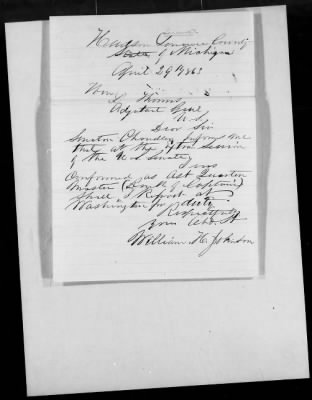 Hudson Lenawee County
State of Michigan
April 29th 1863
Hon
L Thomas
Adjutant Genl
U.S.
Dear Sir
Senator Chandler informs me
that at the Extra Session
of the U S Senate I was
Confirmed as Asst Quarter
Master (Rank of Captain)
Shall I Report at
Washington for duty
Respectfully
Your Obt St
William H. Johnson